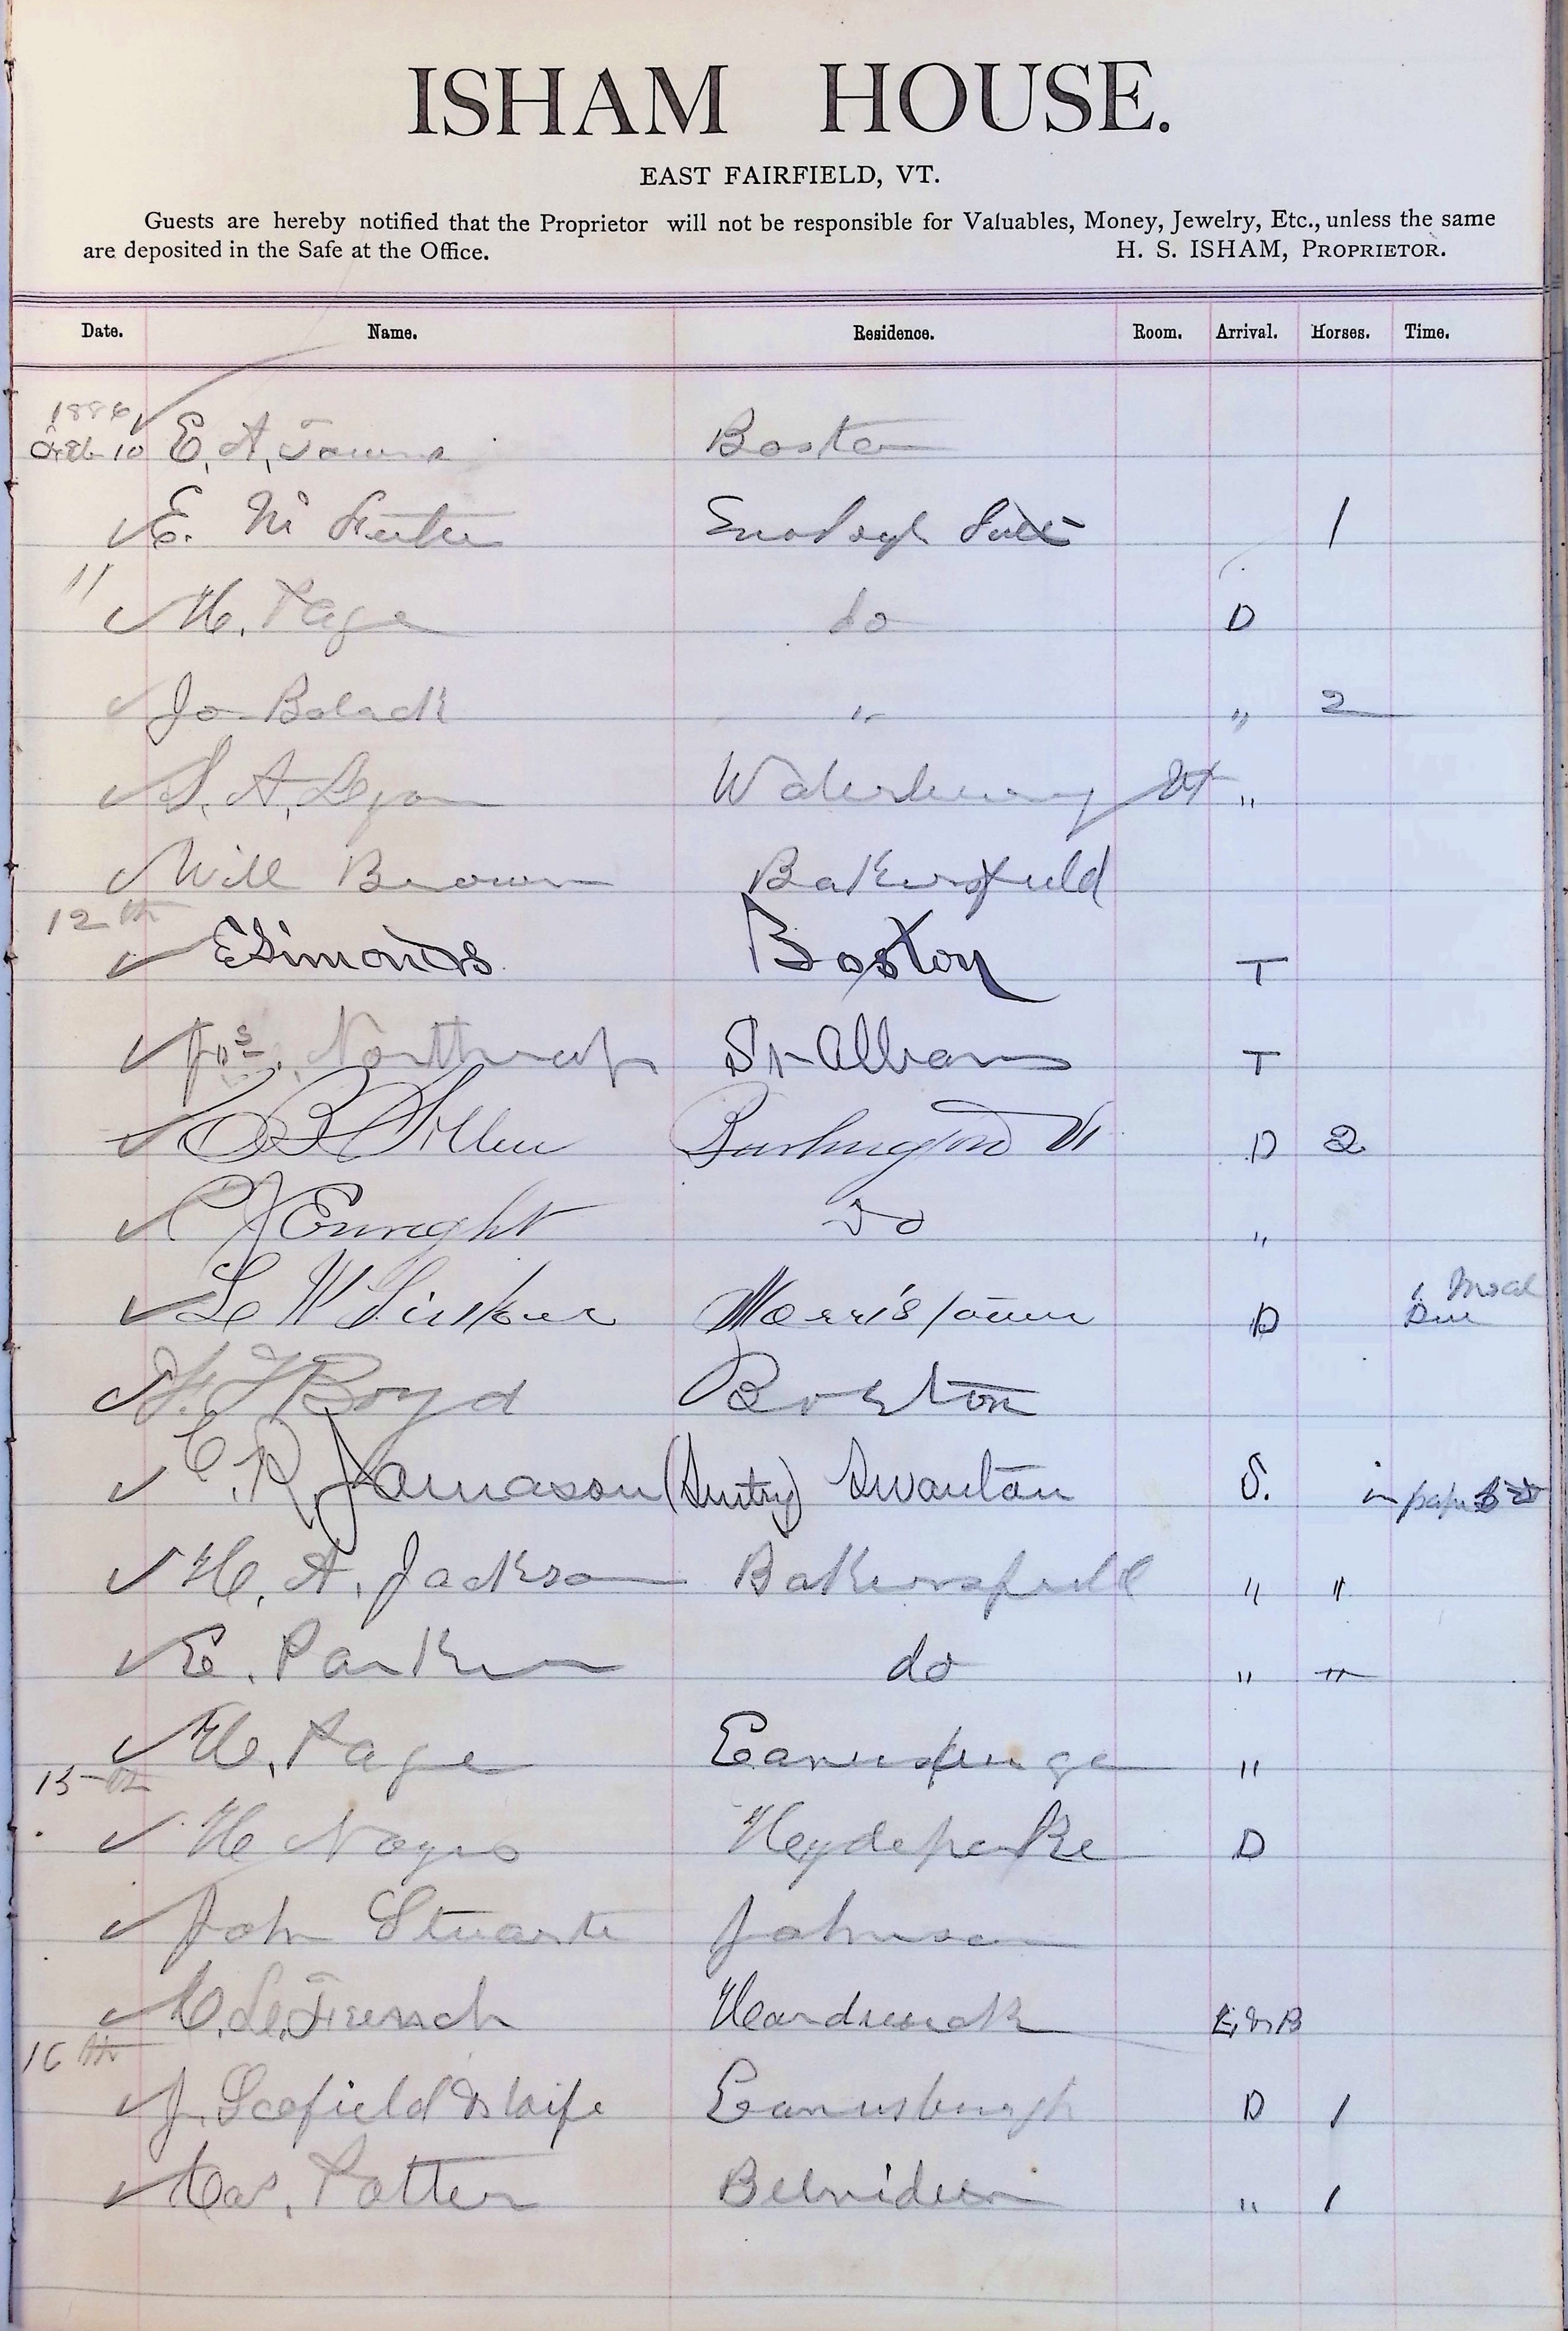 ISHAM HOUSE.
EAST FAIRFIELD, VT.
Guests are hereby notified that the Proprietor will not be responsible for Valuables, Money, Jewelry, Etc., unless the same
are deposited in the Safe at the Office. H. S. ISHAM, PROPRIETOR.
Date. Name. Residence. Room. Arrival. Horses. Time.
1886
10 E. A. Boston
E. M Enosbugh 1
11
H. Page do D
Jo Balack " " 2
S. A. Lyon Waterbury Vt "
Will Brown Bakersfield
12 th
E Simonds Boston T
Jos. Northrop St Albans T
Burlington Vt D 2
Enright Do "
1 Meal
L W Morristown D Due
Boyd Boston
C. R. Jamason Swanton S. in
H. A. Jackson Bakersfield " "
E. Parker do " "
H. Page "
15 th
H Noyes Hydeparke D
John Stuarte Johnson
C. L. French Hardwick
16 th
J. Scofield & Wife D 1
Potter Belvidere " 1